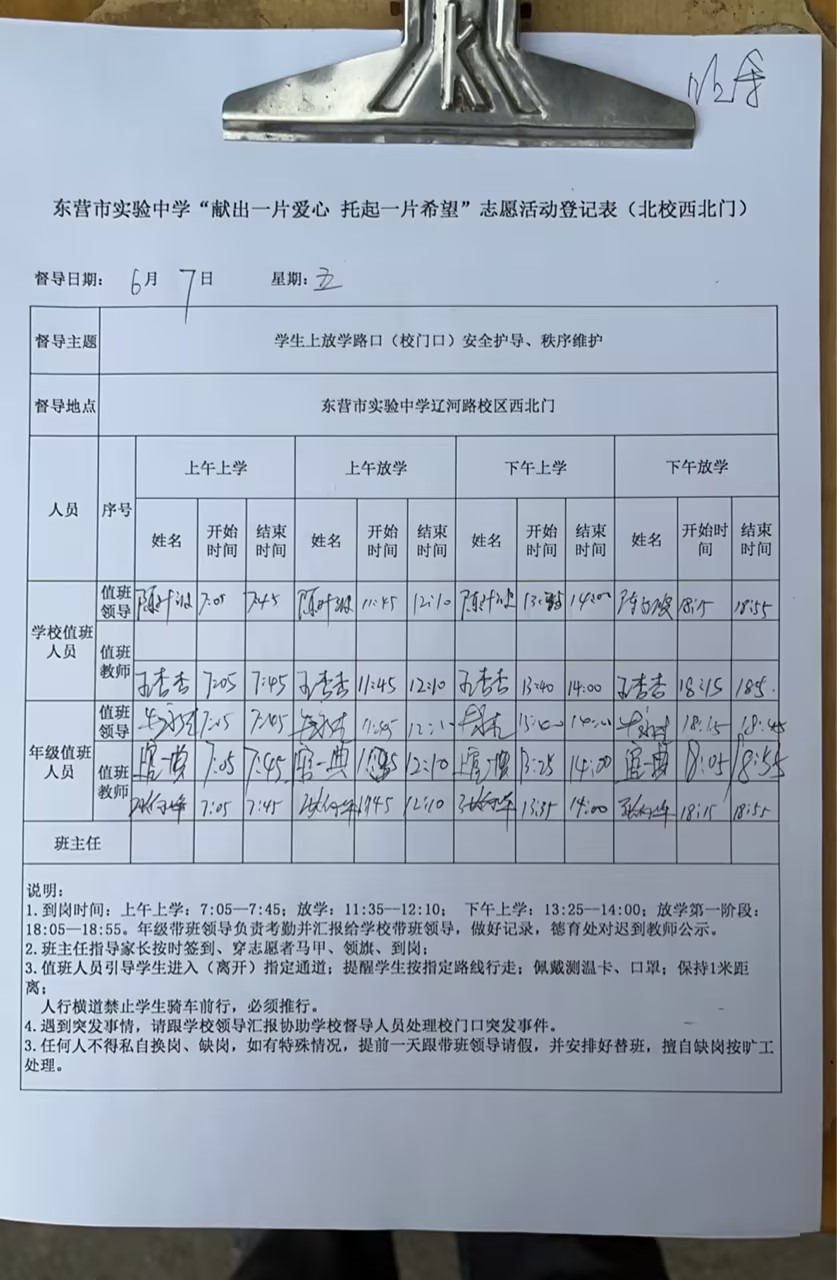 K
东营市实验中学“献出一片爱心 托起一片希望”志愿活动登记表（北校西北门）
督导日期： 6月 7日 星期：五
督导主题 学生上放学路口（校门口）安全护导、秩序维护
督导地点 东营市实验中学辽河路校区西北门
人员 序号 上午上学 上午放学 下午上学 下午放学
姓名 开始时间 结束时间 姓名 开始时间 结束时间 姓名 开始时间 结束时间 姓名 开始时间 结束时间
学校值班人员
值班领导 7:05 7:45 11:45 12:10 14:00 18:15 18:55
值班教师 王杏杏 7:05 7:45 王杏杏 11:45 12:10 王杏杏 13:40 14:00 王杏杏 18:15 185.
年级值班人员
值班领导 7:45 11:45 18:15 18:45
值班教师 7:05 7:45 12:10 13:25 14:00 18:05 18:55
7:05 7:45 1745 12:10 13:35 14:00 18:15 18:55
班主任
说明：
1.到岗时间：上午上学：7:05—7:45；放学：11:35—12:10； 下午上学：13:25—14:00；放学第一阶段：
18:05—18:55。年级带班领导负责考勤并汇报给学校带班领导，做好记录，德育处对迟到教师公示。
2.班主任指导家长按时签到、穿志愿者马甲、领旗、到岗；
3.值班人员引导学生进入（离开）指定通道；提醒学生按指定路线行走；佩戴测温卡、口罩；保持1米距
离；
人行横道禁止学生骑车前行，必须推行。
4.遇到突发事情，请跟学校领导汇报协助学校督导人员处理校门口突发事件。
3.任何人不得私自换岗、缺岗，如有特殊情况，提前一天跟带班领导请假，并安排好替班，擅自缺岗按旷工
处理。